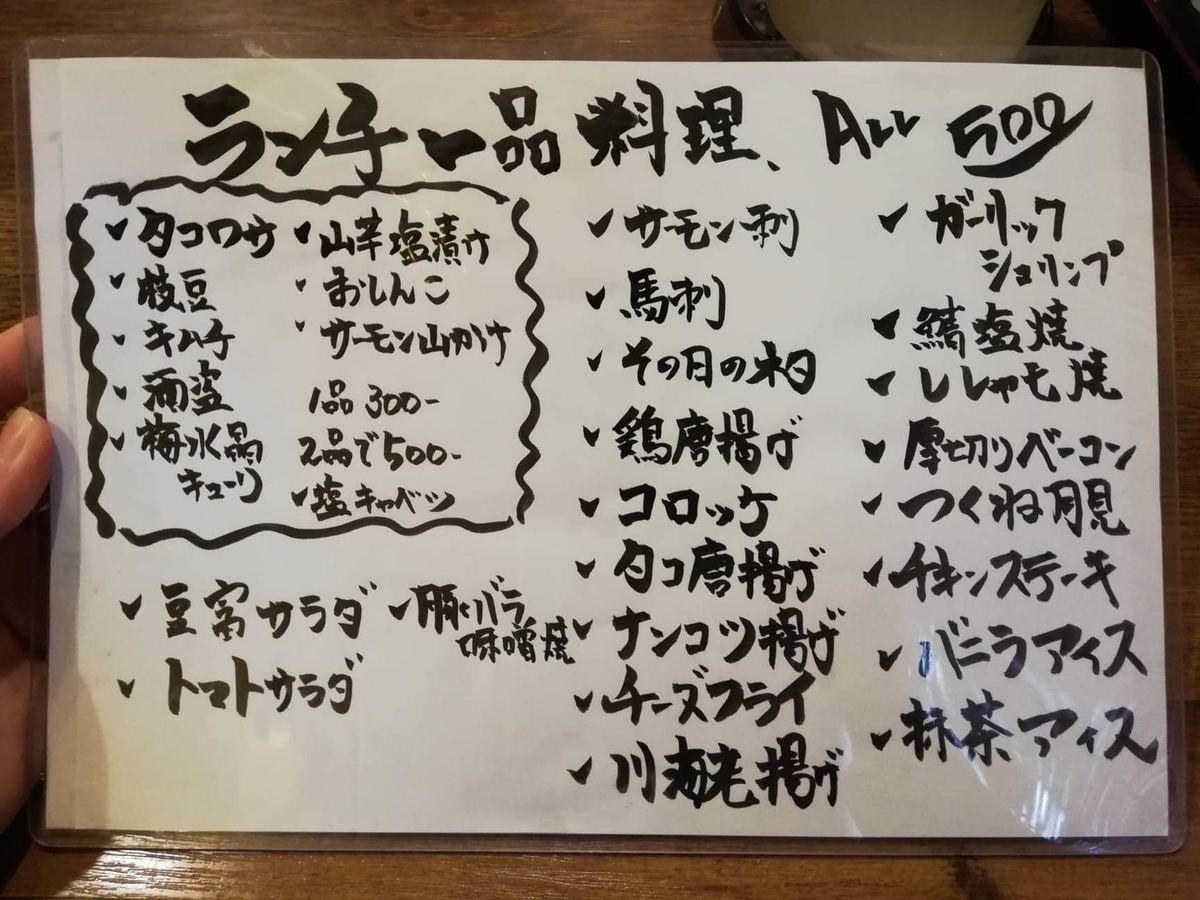 ランチ一品料理、ALL 500
タコワサ
枝豆
キムチ
酒盗
梅水晶
キューリ
山芋塩漬け
おしんこ
サーモン山かけ
1品300-
2品で500-
塩キャベツ
豆富サラダ
トマトサラダ
豚バラ
味噌焼
サーモン刺
馬刺
その日の
鶏唐揚げ
コロッケ
タコ唐揚げ
ナンコツ揚げ
チーズフライ
川海老揚げ
ガーリック
シュリンプ
鯖塩焼
ししゃも焼
厚切りベーコン
つくね月見
チキンステーキ
バニラアイス
抹茶アイス